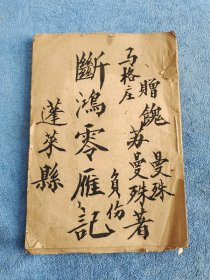 贈餽 曼珠
馬格庄 蘇曼殊著
負份
斷鴻零雁記
蓬萊縣